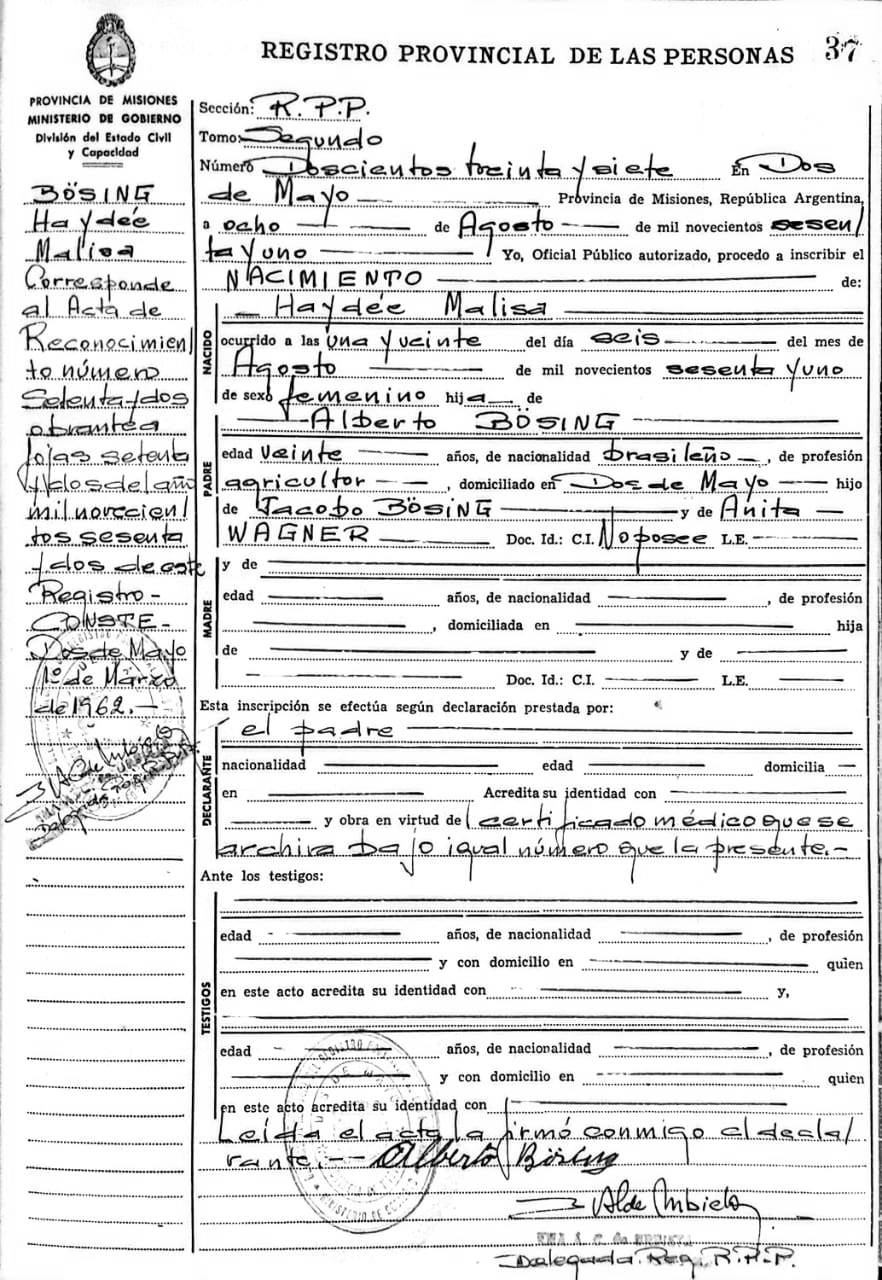 REGISTRO PROVINCIAL DE LAS PERSONAS 37
PROVINCIA DE MISIONES
MINISTERIO DE GOBIERNO
División del Estado Civil
y Capacidad
BÖSING
Haydée
Malisa
Corresponde
al Acta de
Reconocimien/
to número
Setenta y dos
obrante a
fojas setenta
y dos del año
mil novecien/
tos sesenta
y dos de este
Registro -
CONSTE -
Dos de Mayo
1º de Marzo
de 1962.-
Sección: R.P.P.
Tomo: Segundo
Número Doscientos treinta y siete En Dos
de Mayo Provincia de Misiones, República Argentina,
a ocho de Agosto de mil novecientos sesen/
ta y uno Yo, Oficial Público autorizado, procedo a inscribir el
NACIMIENTO de:
NACIDO
Haydée Malisa
ocurrido a las una y veinte del día seis del mes de
Agosto de mil novecientos sesenta y uno
de sexo femenino hija de
PADRE
Alberto BÖSING
edad veinte años, de nacionalidad brasileño, de profesión
agricultor, domiciliado en Dos de Mayo hijo
de Jacobo BÖSING y de Anita
WAGNER Doc. Id.: C.I. No posee L.E.
MADRE
y de
edad años, de nacionalidad , de profesión
, domiciliada en hija
de y de
Doc. Id.: C.I. L.E.
Esta inscripción se efectúa según declaración prestada por:
DECLARANTE
el padre
nacionalidad edad domicilia
en Acredita su identidad con
y obra en virtud del certificado médico que se
archiva bajo igual número que la presente.-
Ante los testigos:
TESTIGOS
edad años, de nacionalidad , de profesión
y con domicilio en quien
en este acto acredita su identidad con y,
edad años, de nacionalidad , de profesión
y con domicilio en quien
en este acto acredita su identidad con
Leída el acta la firmó conmigo el decla/
rante.-- Alberto Bösing
Delegada Reg. R.P.P.